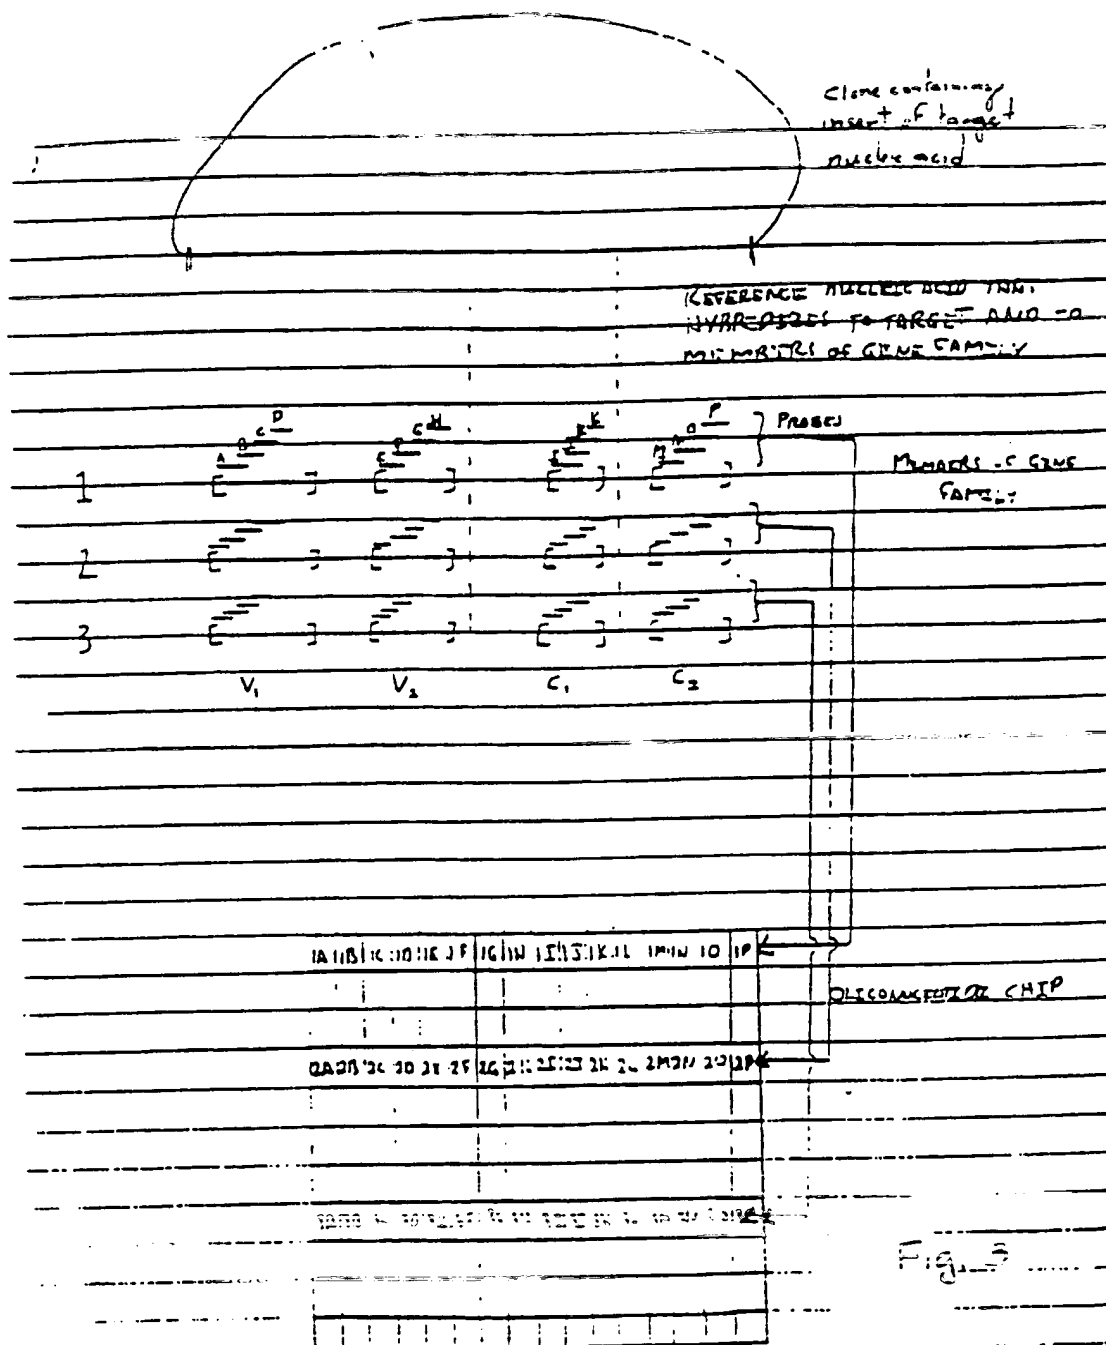 Clone containing
insert of target
nucleic acid
REFERENCE NUCLEIC ACID
HYBRIDIZES TO TARGET AND TO
MEMBERS OF GENE FAMILY
D
C
B
A
H
G
F
E
K
P
O
N
M
PROBES
MEMBERS OF GENE
FAMILY
1
2
3
V₁ V₂ C₁ C₂
1A 1B 1C 1D 1E 1F 1G 1H 1I 1J 1K 1L 1M 1N 1O 1P
OLIGONUCLEOTIDE CHIP
2A 2B 2C 2D 2E 2F 2G 2H 2I 2J 2K 2L 2M 2N 2O 2P
Fig. 3